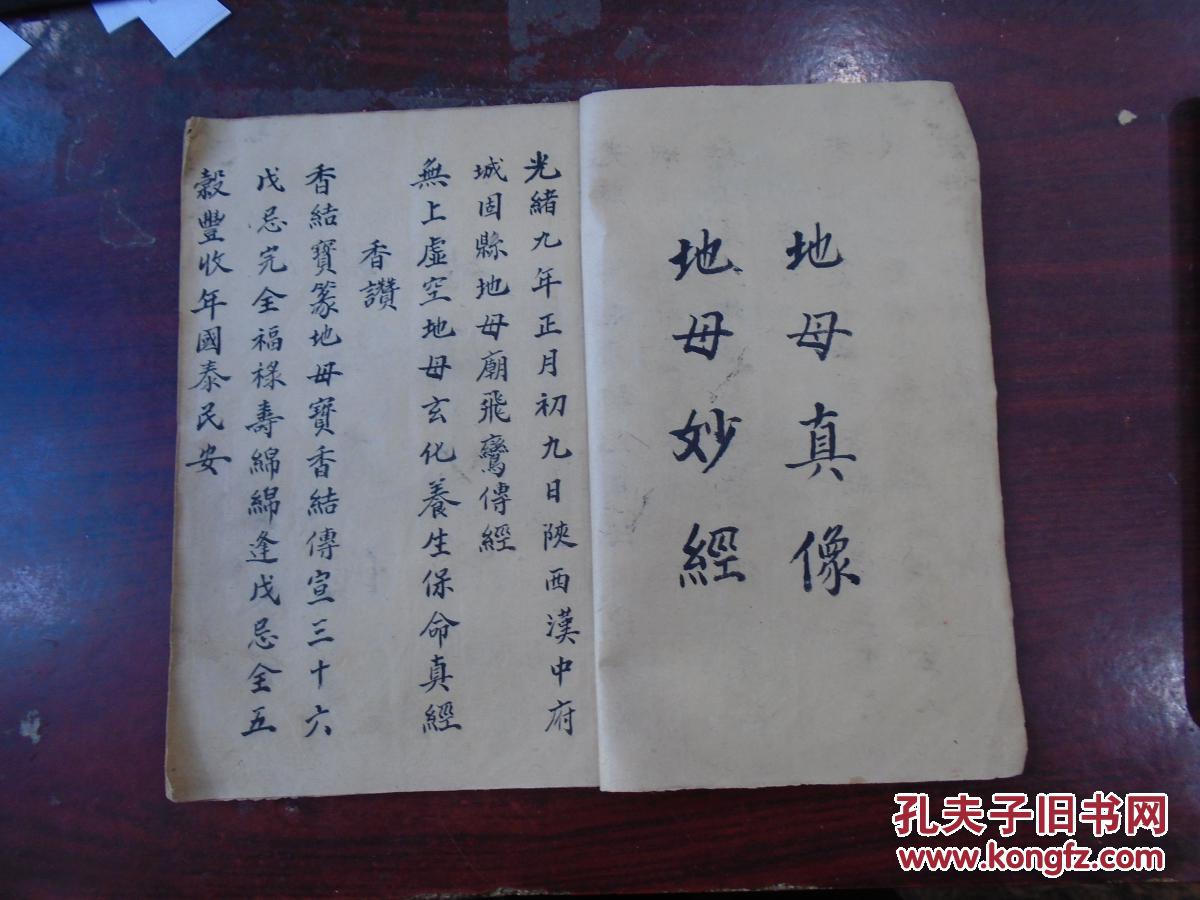 地母真像
地母妙經
光緒九年正月初九日陝西漢中府
城固縣地母廟飛鸞傳經
無上虛空地母玄化養生保命真經
香讚
香結寶篆地母寶香結傳宣三十六
戊忌完全福祿壽綿綿逢戊忌全五
穀豐收年國泰民安
孔夫子旧书网
www.kongfz.com